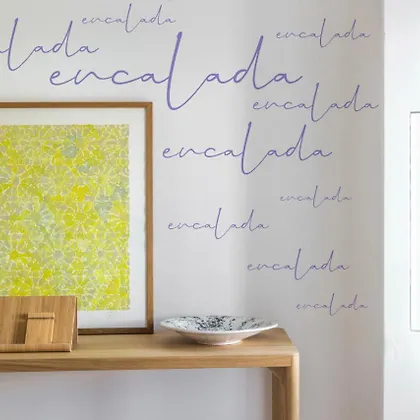 encalada
encalada
encalada
encalada
encalada
encalada
encalada
encalada
encalada
encalada